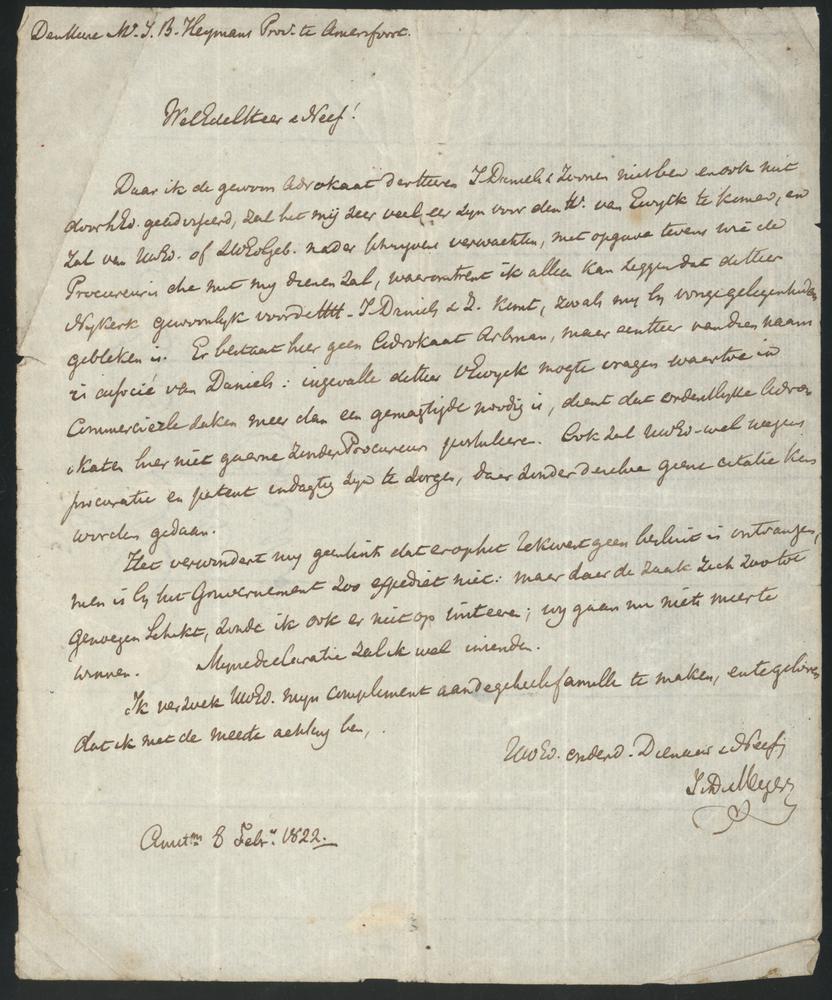 Den Heere Mr. J. B. Heymans Procr. te Amersfoort.
WelEdelHeer & Neef!
Daar ik de gewoon Advokaat der Heeren J. Daniels & Zoonen niet ben en ook niet
door hEd. geadviseerd, zal het mij zeer veel eer zyn voor den Hr. van Ewyck te komen, en
zal van UwEd. of ZWEdGeb. nader schryven verwachten, met opgave tevens wie de
Procureur is die met my dienen zal, waaromtrent ik alleen kan zeggen dat de Heer
Nykerk gewoonlyk voor de HH. J. Daniels & Z. komt, zooals my by vorige gelegenheden
gebleken is. Er bestaat hier geen Advokaat Arbman, maar een Heer van dien naam
is associé van Daniels: ingevalle de Heer vEwyck mogte vragen waartoe in
Commercieele zaken meer dan een gemagtigde noodig is, dient dat ordentlyke Advo-
katen hier niet gaarne zonder Procureur postuleeren. Ook zal UwEd. wel wegens
procuratie en patent indagtig zyn te zorgen, daar zonder dezelve geene citatie kan
worden gedaan.
Het verwondert my geenzints dat er op het Rekwest geen besluit is ontvangen,
men is by het Gouvernement zoo expediet niet: maar daar de zaak zich zoo ten
genoegen schikt, zoude ik ook er niet op insteeren; wy gaan nu niets meer te
winnen. Myne declaratie zal ik wel inzenden.
Ik verzoek UwEd. myn compliment aan de geheele familie te maken, en te gelooven
dat ik met de meeste achting ben,
UwEd. onderd. Dienaar & Neef
J. D. Meyer
Amstm 8 Febr. 1822.